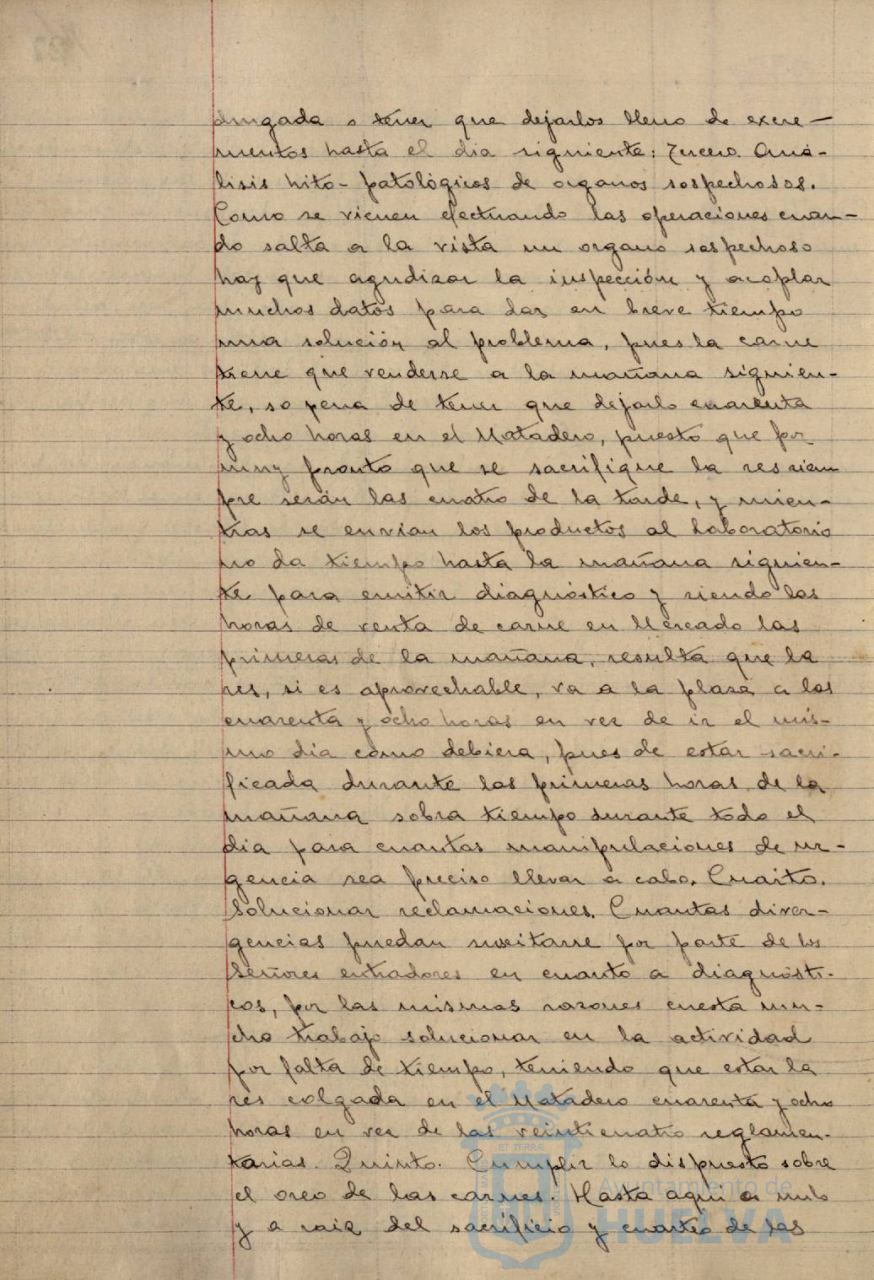 drugada o tener que dejarlos lleno de excre-
mentos hasta el dia siguiente: Tercero. Aná-
lisis hito-patológicos de organos sospechosos.
Como se vienen efectuando las operaciones cuan-
do salta a la vista un organo sospechoso
hay que agudizar la inspección y acoplar
muchos datos para dar en breve tiempo
una solución al problema, pues la carne
tiene que venderse a la mañana siguien-
te, so pena de tener que dejarlo cuarenta
y ocho horas en el Matadero, puesto que por
muy pronto que se sacrifique la res siem
pre serán las cuatro de la tarde, y mien-
tras se envian los productos al Laboratorio
no da tiempo hasta la mañana siguien-
te para emitir diagnóstico y siendo las
horas de venta de carne en Mercado las
primeras de la mañana, resulta que la
res, si es aprovechable, va a la plaza a los
cuarenta y ocho horas en vez de ir el mis-
mo dia como debiera, pues de estar sacri-
ficada durante las primeras horas de la
mañana sobra tiempo durante todo el
dia para cuantas manipulaciones de ur-
gencia sea preciso llevar a cabo. Cuarto.
Solucionar reclamaciones. Cuantas diver-
gencias puedan suscitarse por parte de los
Señores entradores en cuanto a diagnósti-
cos, por las mismas razones cuesta mu-
cho trabajo solucionar en la actividad
por falta de tiempo, teniendo que estar la
res colgada en el Matadero cuarenta y ocho
horas en vez de las veinticuatro reglamen-
tarias. Quinto. Cumplir lo dispuesto sobre
el oreo de las carnes. Hasta aqui es nulo
y a raiz del sacrificio y cuarteo de las
Ayuntamiento de
HUELVA